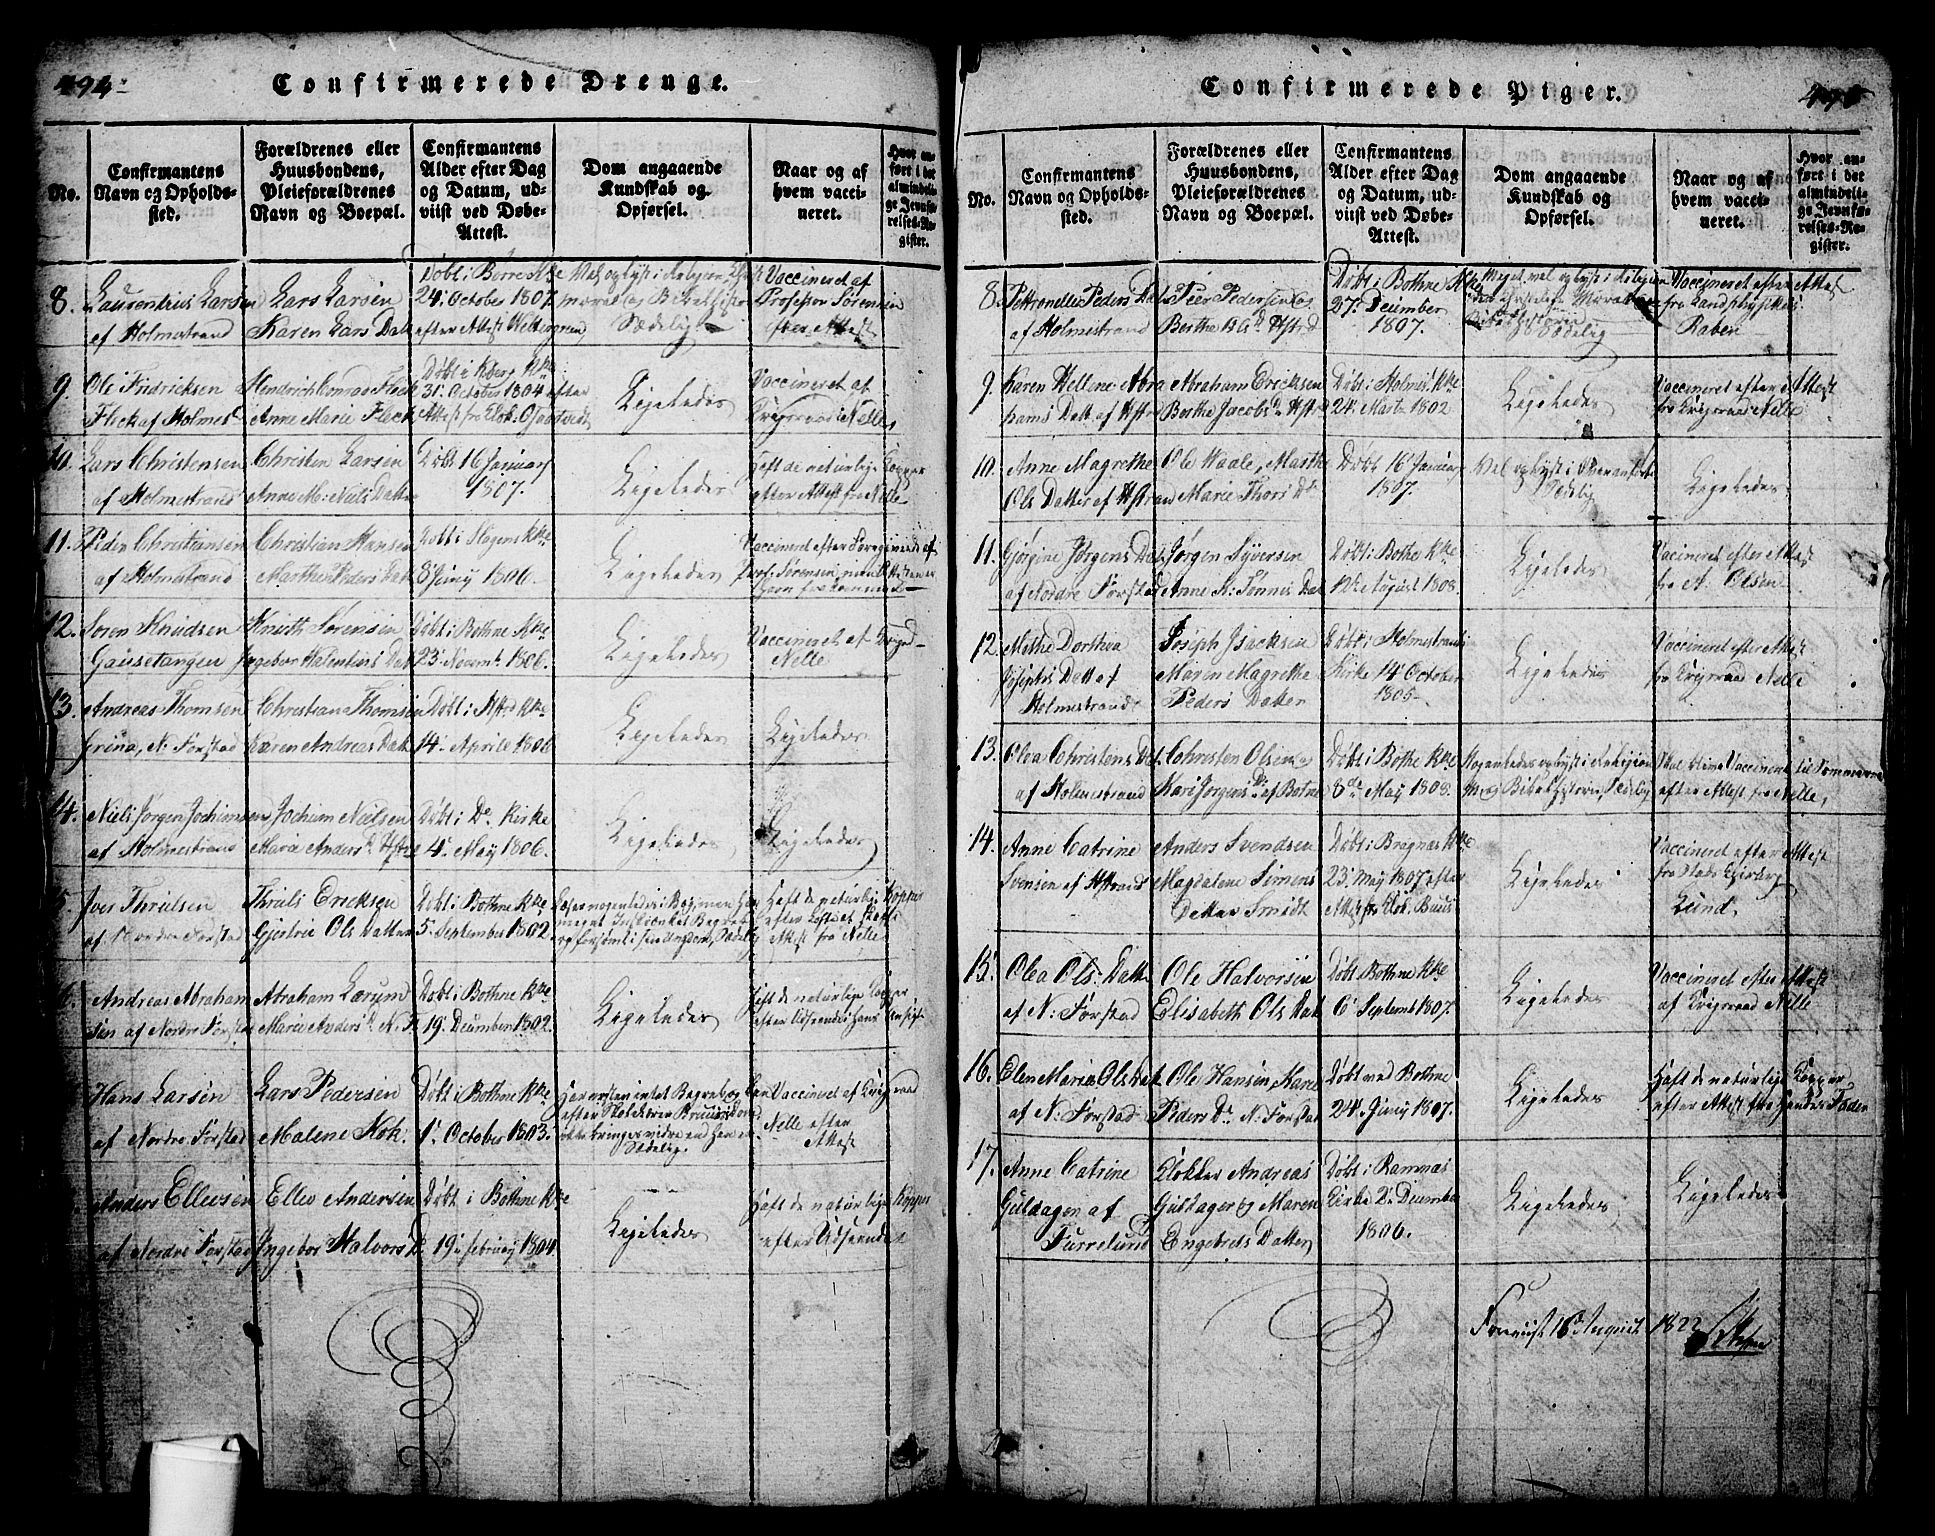 494
Confirmerede Drenge.
No.
Confirmantens
Navn og Opholds-
sted.
Forældrenes eller
Huusbondens,
Pleieforældrenes
Navn og Boepæl.
Confirmantens
Alder efter Dag
og Datum, ud-
viist ved Døbe-
Attest.
Dom angaaende
Kundskab og
Opførsel.
Naar og af
hvem vacci-
neret.
Hvor an-
ført i det
almindeli-
ge Jevnfø-
relses-Re-
gister.
8.
Laurentius Larsen
af Holmestrand
Lars Larsen
Karen Lars Datt
Døbt i Borre Kke
24 October 1807.
efter Attest Wettergreen
Vel oplyst i Religion
moral og Bibelhistorie
Sædelig
Vaccineret af
Professor Sørensen
efter Attest
9.
Ole Fredricksen
Fleck af Holmes
Hendrich Conrad Fleck
Anne Marie Fleck
31 October 1804 efter
Ligeledes
Vaccineret af
Krigsraad Nelle
10.
Lars Christensen
af Holmestrand
Christen Larsen
Anne M: Niels Datter
Døbt 16 Januar
1807.
Ligeledes
Haft de naturlige Kopper
efter Attest fra Nelle
11.
Peder Christiansen
af Holmestrand
Christian Hansen
Marthe Peders Datt
Døbt i Slagens Kke
8 Juny 1806.
Ligeledes
Vaccineret efter Foregivende af
Prof: Sørensen
12.
Soren Knudsen
Gausetangen
Knuth Sørensen
Ingebor Halentius Datt
Døbt i Bothne Kke
23 Novemb. 1806.
Ligeledes
Vaccineret af Krigsr
Nelle
13.
Andreas Thomsen
N. Førstad
Christian Thomsen
Karen Andreas Datt
Døbt i Hstrd Kke
14 Aprill 1806
Ligeledes
Ligeledes
14.
Niels Jørgen Jochimsen
af Holmestrand
Jochum Nielsen
Marie Anders D. Hstrd
Døbt i Do Kirke
4 May 1806.
Ligeledes
Ligeledes
5.
Iver Thrulsen
af Nordre Førstad
Thruls Ericksen
Gjertrie Ols Datter
Døbt i Bothne Kke
5 September 1802.
Læser nogenledes i Bog men har
meget Indskrænket Begreb
og forsømt i sin Ungdom, Sædelig
Haft de naturlige Kopper
Attest fra Nelle
Andreas Abraham
sen af Nordre Førstad
Abraham Lærum
Marie Anders D. N. F.
Døbt i Bothne Kke
19 December 1802.
Ligeledes
Haft de naturlige Kopper
efter Udseende i hans Ansigt
Hans Larsen
af Nordre Førstad
Lars Pedersen
Malene Koh:
Døbt i Bothne Kke
1 October 1803.
Sædelig.
Vaccineret af Krigsraad
Nelle efter
Attest
Anders Ellevsen
af Nordre Førstad
Ellev Andersen
Ingebor Halvors D
Døbt i Bothne Kke
19 februy 1804.
Ligeledes
Haft de naturlige Kopper
efter Udseendet
Confirmerede Piger.
495
No.
Confirmantens
Navn og Opholds-
sted.
Forældrenes eller
Huusbondens,
Pleieforældrenes
Navn og Boepæl.
Confirmantens
Alder efter Dag
og Datum, ud-
viist ved Døbe-
Attest.
Dom angaaende
Kundskab og
Opførsel.
Naar og af
hvem vacci-
neret.
Hvor an-
ført i det
almindeli-
ge Jevnfø-
relses-Re-
gister.
8.
Pettronelle Peders Dat
af Holmestrand
Peer Pedersen og
Berthe
Døbt i Bothne Kke
27 December
1807.
Meget vel oplyst i Religion
Sædelig
Vaccineret efter Attest
fra Landphysikus
Raben
9.
Karen Hellene Abra
hams Datt af Hstr
Abraham Ericksen
Berthe Jacobs D Hstr
Døbt i Holmes Kke
24 Marts 1802.
Ligeledes
Vaccineret efter Attest
fra Krigsraad Nelle
10.
Anne Magrethe
Ols Datter af Hstran
Ole Waale, Marthe
Marie Thors Dr
Døbt 16 Januar
1807.
Vel oplyst i
Sædelig
Ligeledes
11.
Gjorgine Jørgens Dat
af Nordre Førstad
Jørgen Syversen
Anne K: Tønnes Dat
Døbt i Bothe Kke
August 1808.
Ligeledes
Vaccineret efter Attest
fra A: Olsen
12.
Methe Dorthea
Josephs Datt af
Holmestrand
Joseph Isacksen
Maren Magrethe
Peders Datter
Døbt i Holmestrand
Kirke 14 October
1805
Ligeledes
Vaccineret efter Attest
fra Krigsraad Nelle
13.
Olea Christens Dat
af Holmestrand
Christen Olsen
Kari Jorgens D af Botne
Døbt i Bothe Kke
8de May 1808.
Nogenledes oplyst i Religion
og Bibelhistorie, Sædelig
Skal blive Vaccineret til Sommeren
efter Attest fra Nelle,
14.
Anne Catrine
Svensen af Hstrand
Anders Svendsen
Magdalene Simens
Datter Smidt
Døbt i Bragnæs Kke
23 May 1807 efter
Attest fra Klok. Buus
Ligeledes
Vaccineret efter Attest
fra Stads Chirurg
Lund.
15.
Olea Ols: Datt
af N: Førstad
Ole Halvorsen
Elisabeth Ols Dat
Døbt Bothne Kke
6 Septemb 1807.
Ligeledes
Vaccineret efter Attest
af Krigsraad Nelle
16.
Elen Maria Ols Dat
af N: Førstad
Ole Hansen, Karen
Peders Dr N: Førstad
Døbt ved Bothne
24 Juny 1807.
Ligeledes
Haft de naturlige Kopper
efter Attest fra hendes Fader
17.
Anne Catrine
Guldagen af
Furrelund
Klokker Andreas
Guldager og Maren
Engebrets Datter
Døbt i Ramnæs
Kirke 2 December
1806.
Ligeledes
Ligeledes
Foreviist 16 August 1822